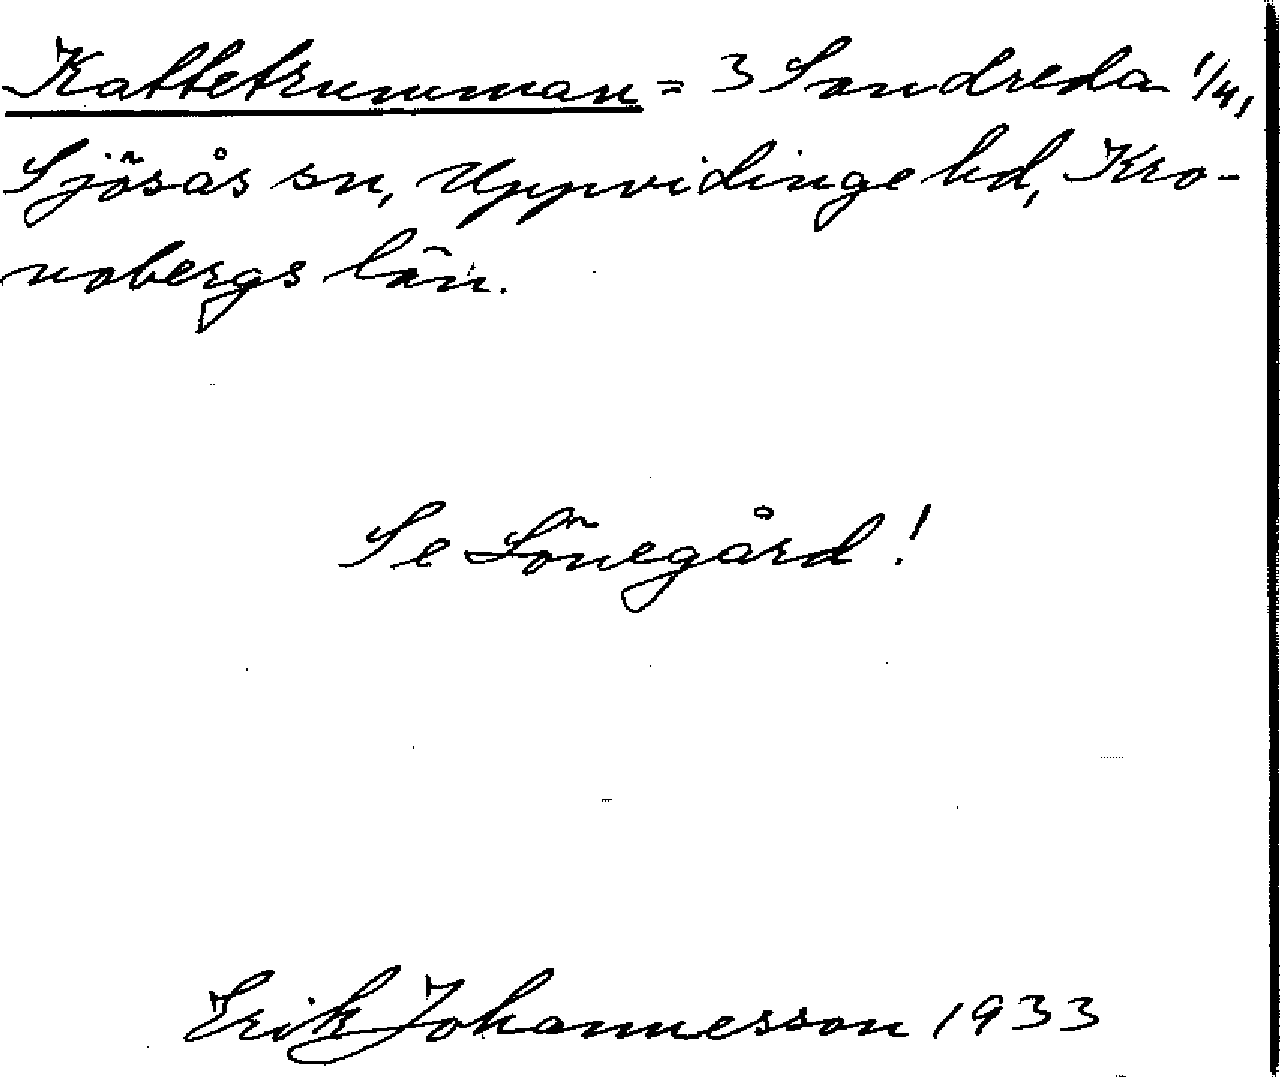 Kattetrumman = 3 Sandreda 1/4,
Sjösås sn, Uppvidinge hd, Kro-
nobergs län.
Se Lönegård!
Erik Johannesson 1933